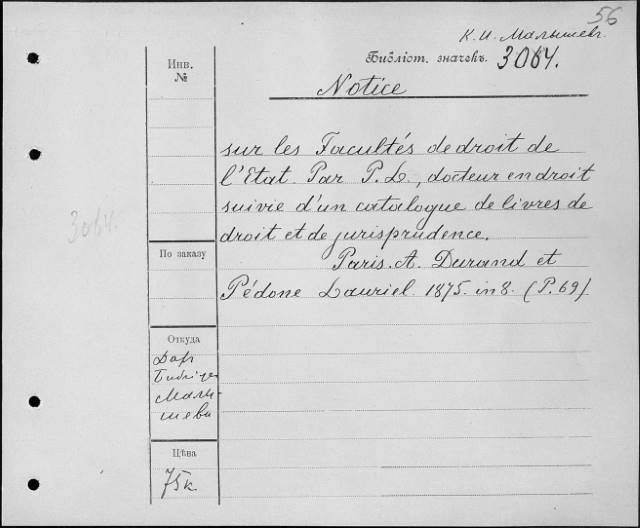 56
К. И. Малышев.
Библіот. значекъ. 3064.
Notice
Инв.
№
sur les Facultés de droit de
l'Etat. Par P. L., docteur en droit
suivie d'un catalogue de livres de
droit et de jurisprudence.
3064.
По заказу
Paris. A. Durand et
Pédone Lauriel. 1875. in 8. (P. 69)
Откуда
Дар
Малы-
шева
Цѣна
75к